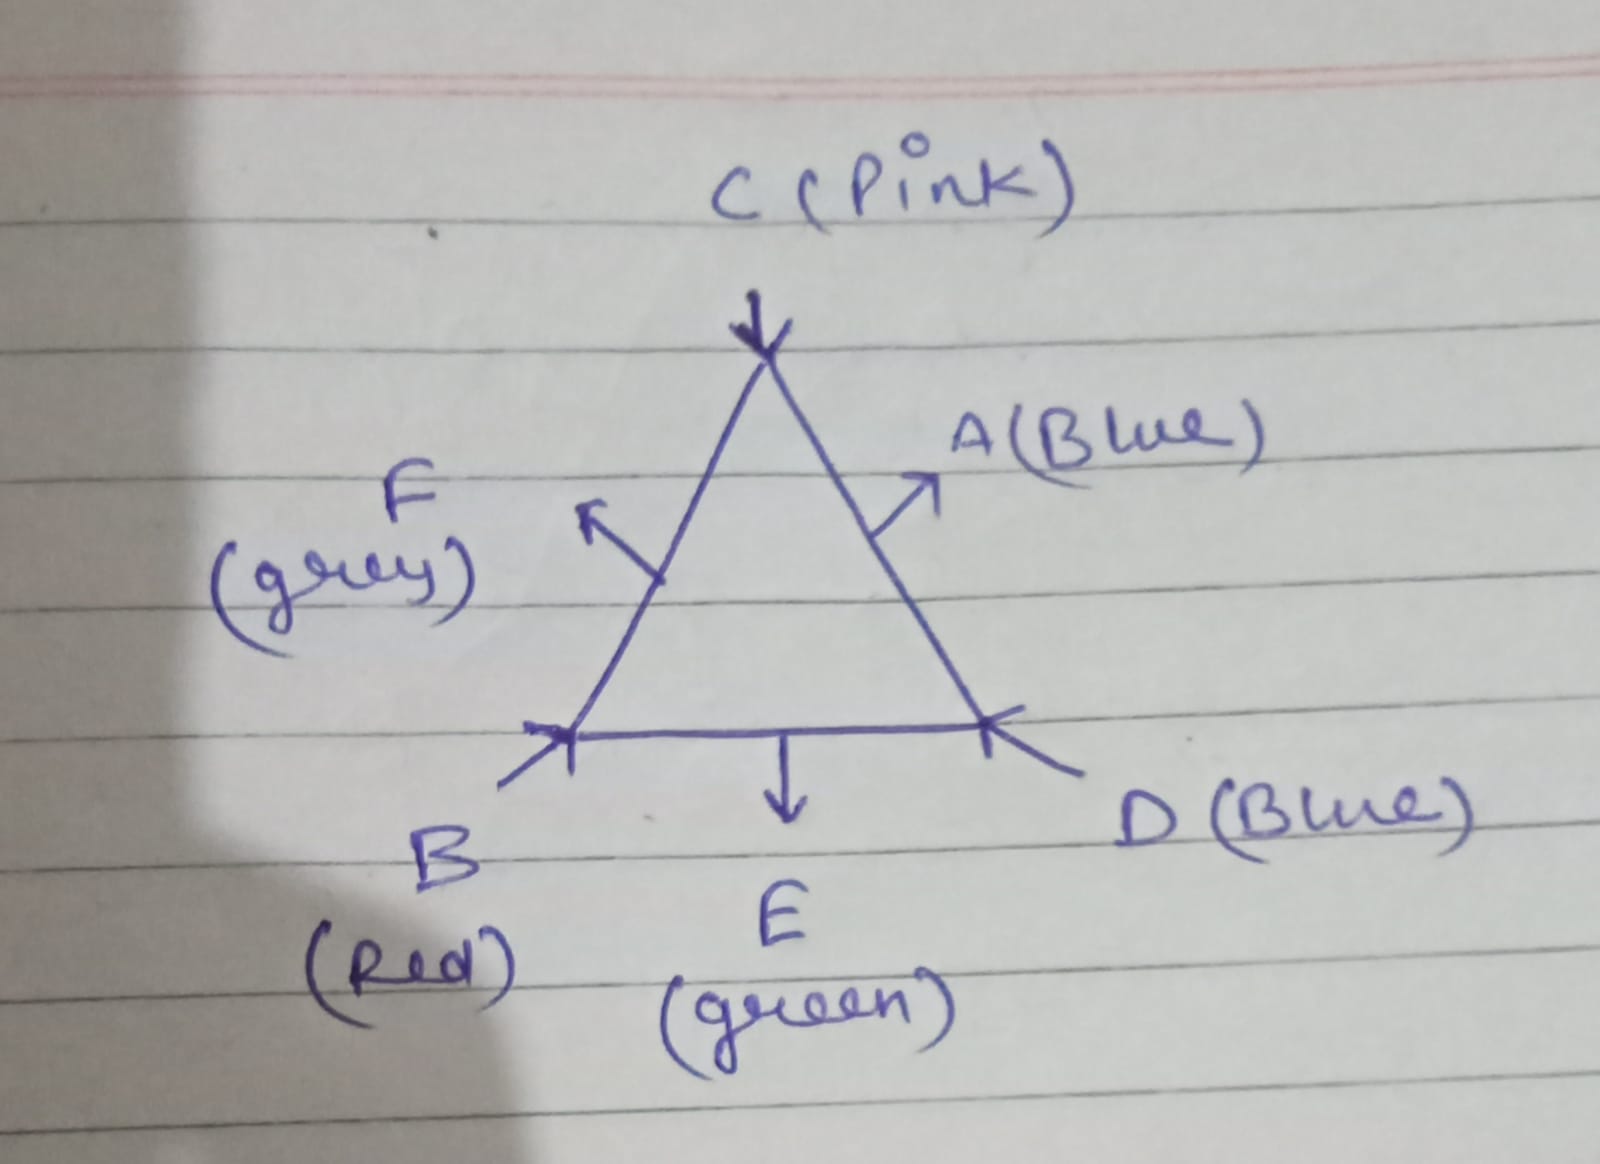 C (Pink)
A (Blue)
F
(grey)
D (Blue)
B
(Red)
E
(green)